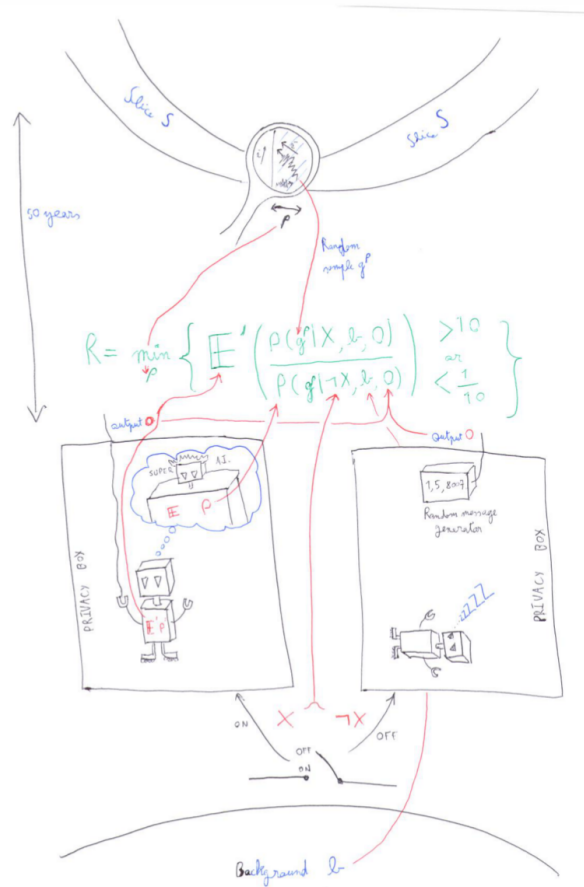 Slice S
Slice S
50 years
ρ
Random
sample g^ρ
R = min_ρ { 𝔼' ( P(g^ρ|X, b, O) / P(g^ρ|¬X, b, O) ) >10 or < 1/10 }
output O
output O
SUPER A.I.
𝔼 P
𝔼' P
PRIVACY BOX
Random message
generator
PRIVACY BOX
ZZZZ
X ¬X
ON
OFF
OFF
ON
Background b